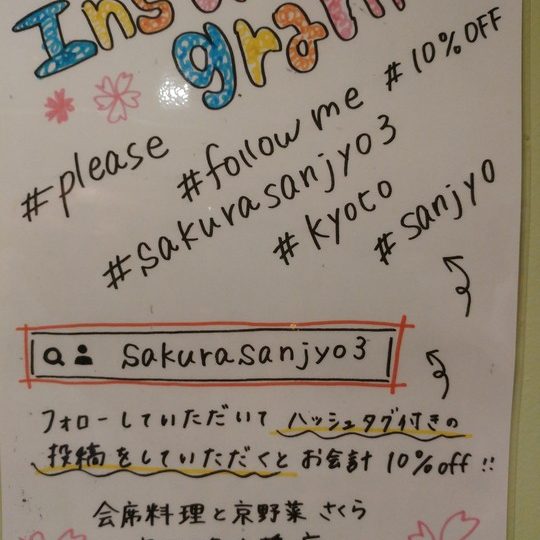 Insta
gram
#10%OFF
#please
#follow me
#sakurasanjyo3
#kyoto
#sanjyo
sakurasanjyo3
フォローしていただいて ハッシュタグ付きの
投稿をしていただくと お会計 10%off !!
会席料理と京野菜 さくら